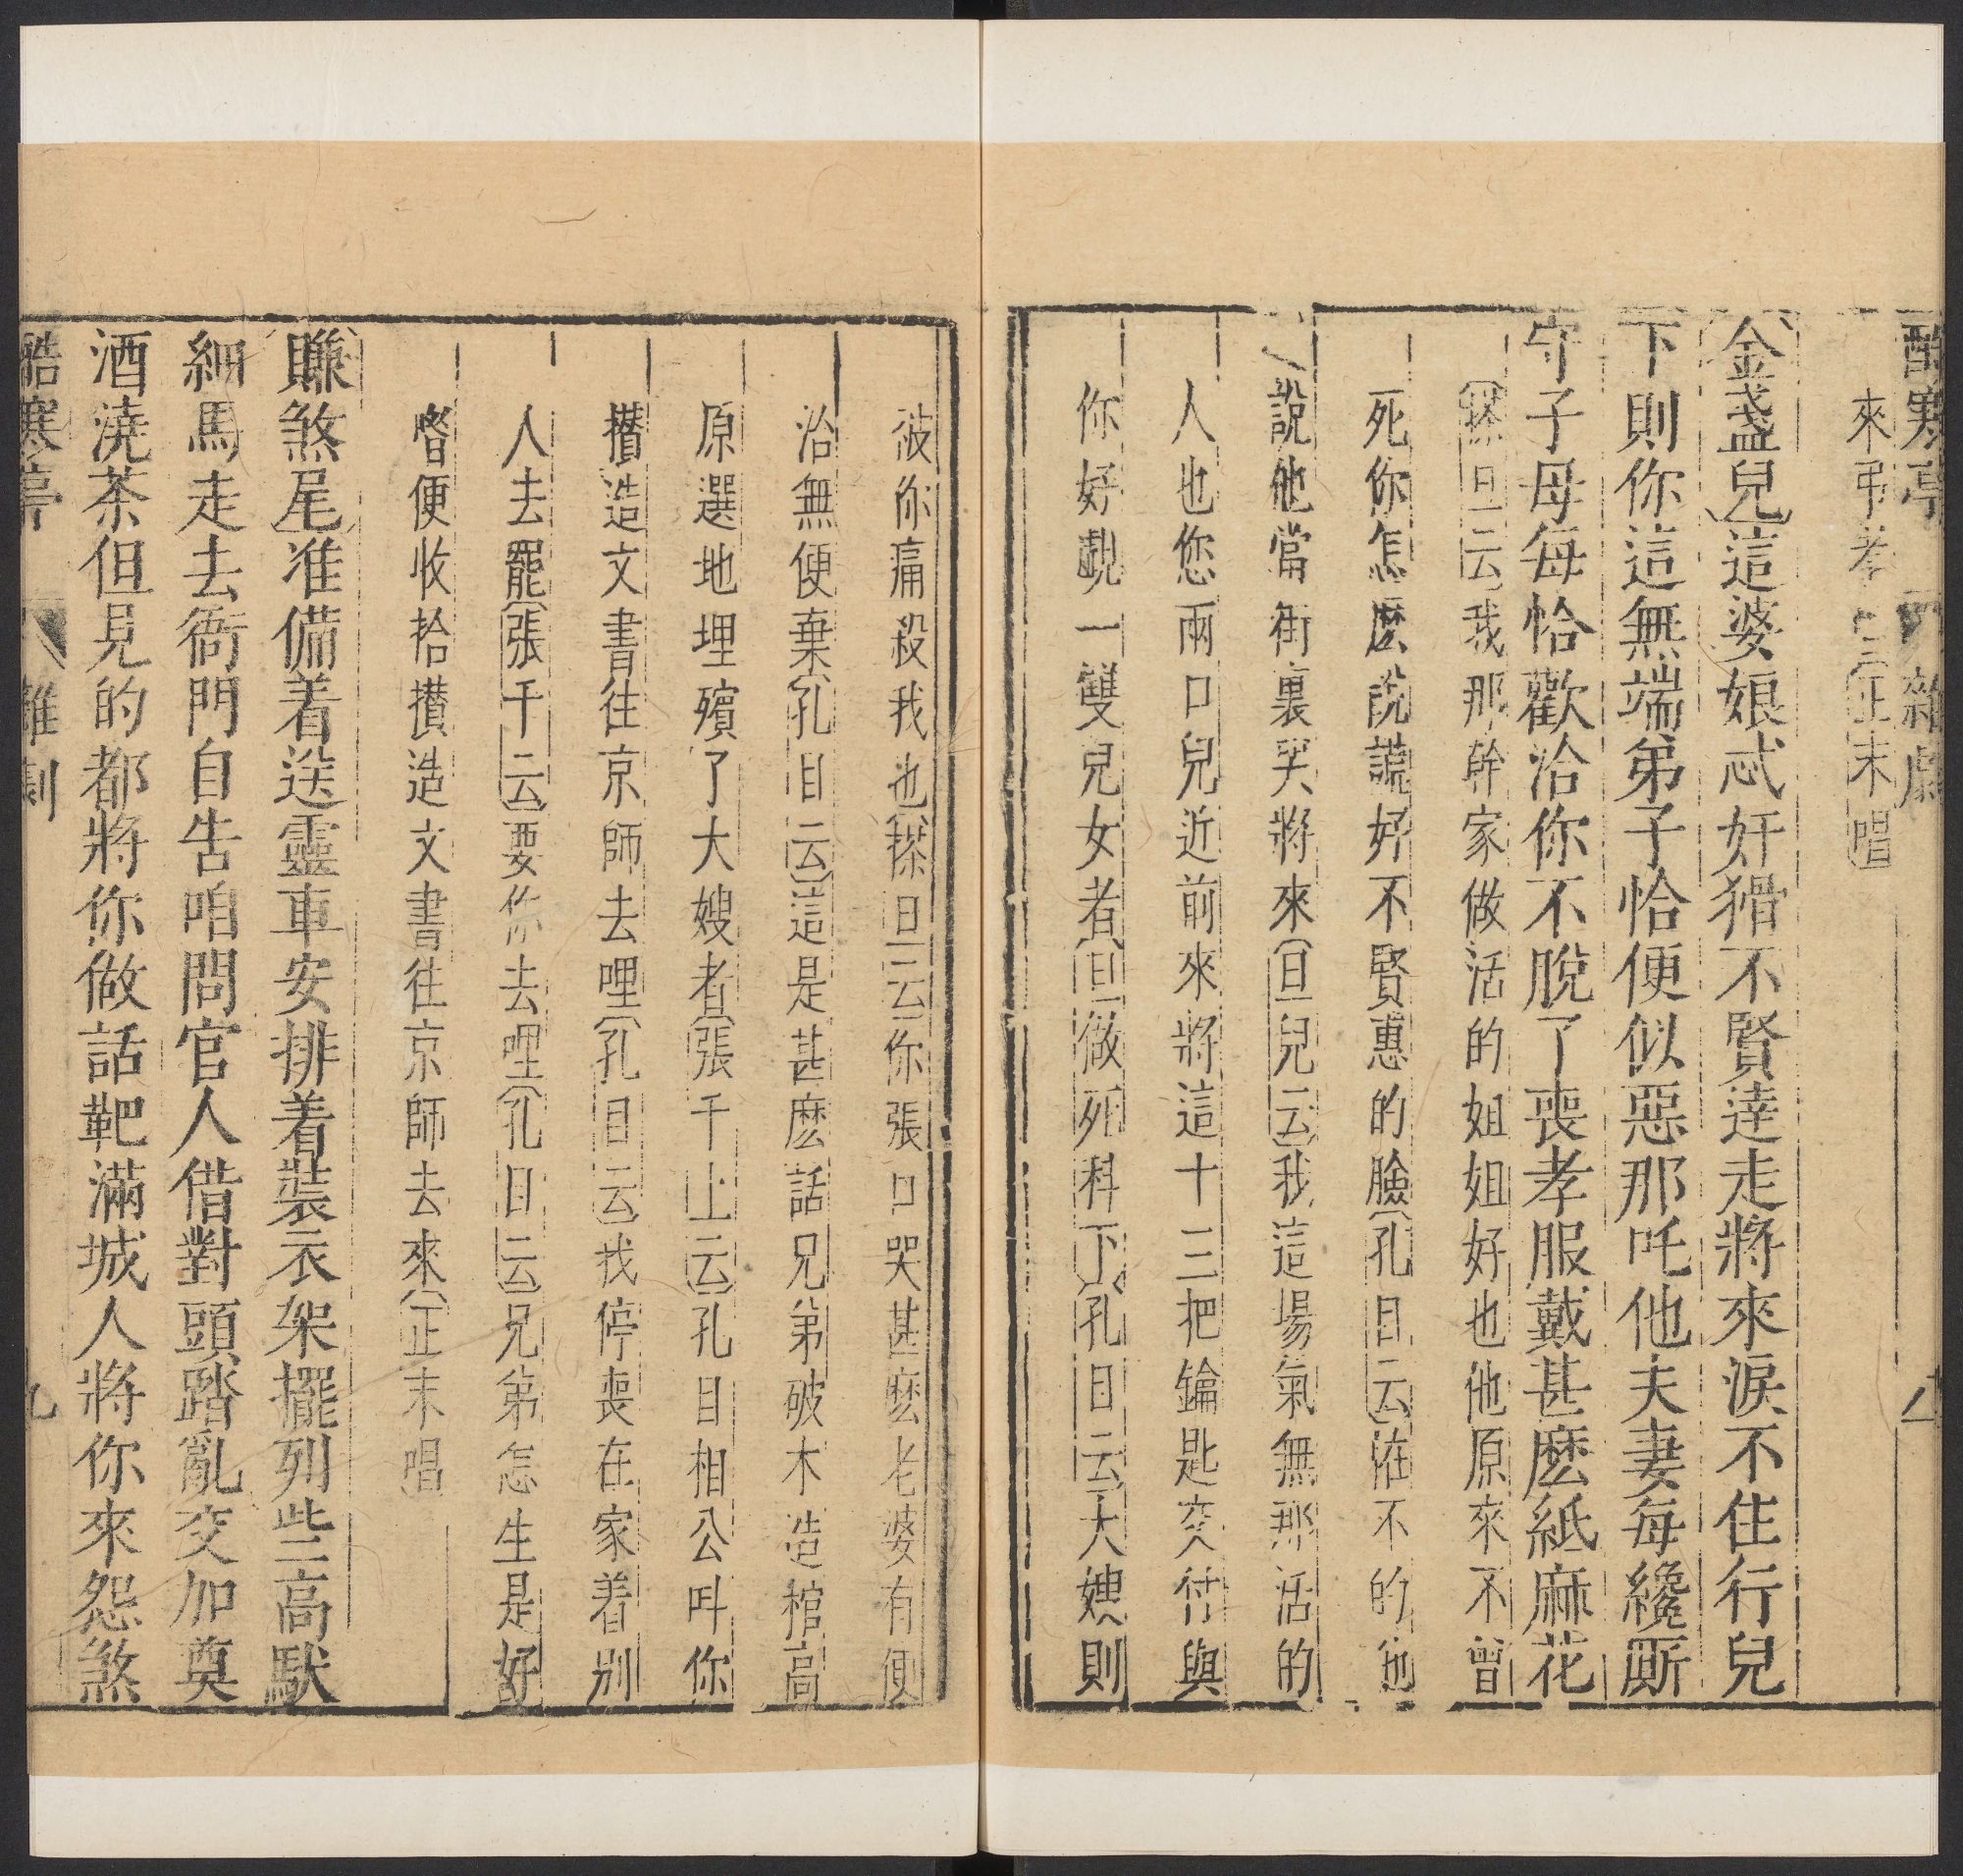 酷寒亭 雜劇 八
來弔孝(正末唱)
(金盞兒)這婆娘忒奸猾不賢達走將來淚不住行兒
下則你這無端弟子恰便似惡那吒他夫妻每纔斷
守子母每恰歡洽你不脫了喪孝服戴甚麽紙麻花
(搽旦云)我那幹家做活的姐姐好也他原來不曾
死你怎麽說謊好不賢惠的臉(孔目云)㑳不的他
說他當街裏哭將來(旦兒云)我這場氣無那活的
人也您兩口兒近前來將這十三把鑰匙交付與
你好覷一雙兒女者(旦做死科下)(孔目云)大嫂則
被你痛殺我也(搽旦云)你張口哭甚麽老婆有便
治無便棄(孔目云)這是甚麽話兄弟破木造棺高
原選地埋殯了大嫂者(張千上云)孔目相公呌你
攢造文書往京師去哩(孔目云)我停喪在家着別
人去罷(張千云)要你去哩(孔目云)兄弟怎生是好
㫺便收拾攢造文書往京師去來(正末唱)
(賺煞尾)准備着送靈車安排着裝衣架擺列些高馱
細馬走去衙門自告咱問官人借對頭踏亂交加奠
酒澆茶但見的都將你做話靶滿城人將你來怨煞
酷寒亭 雜劇 九